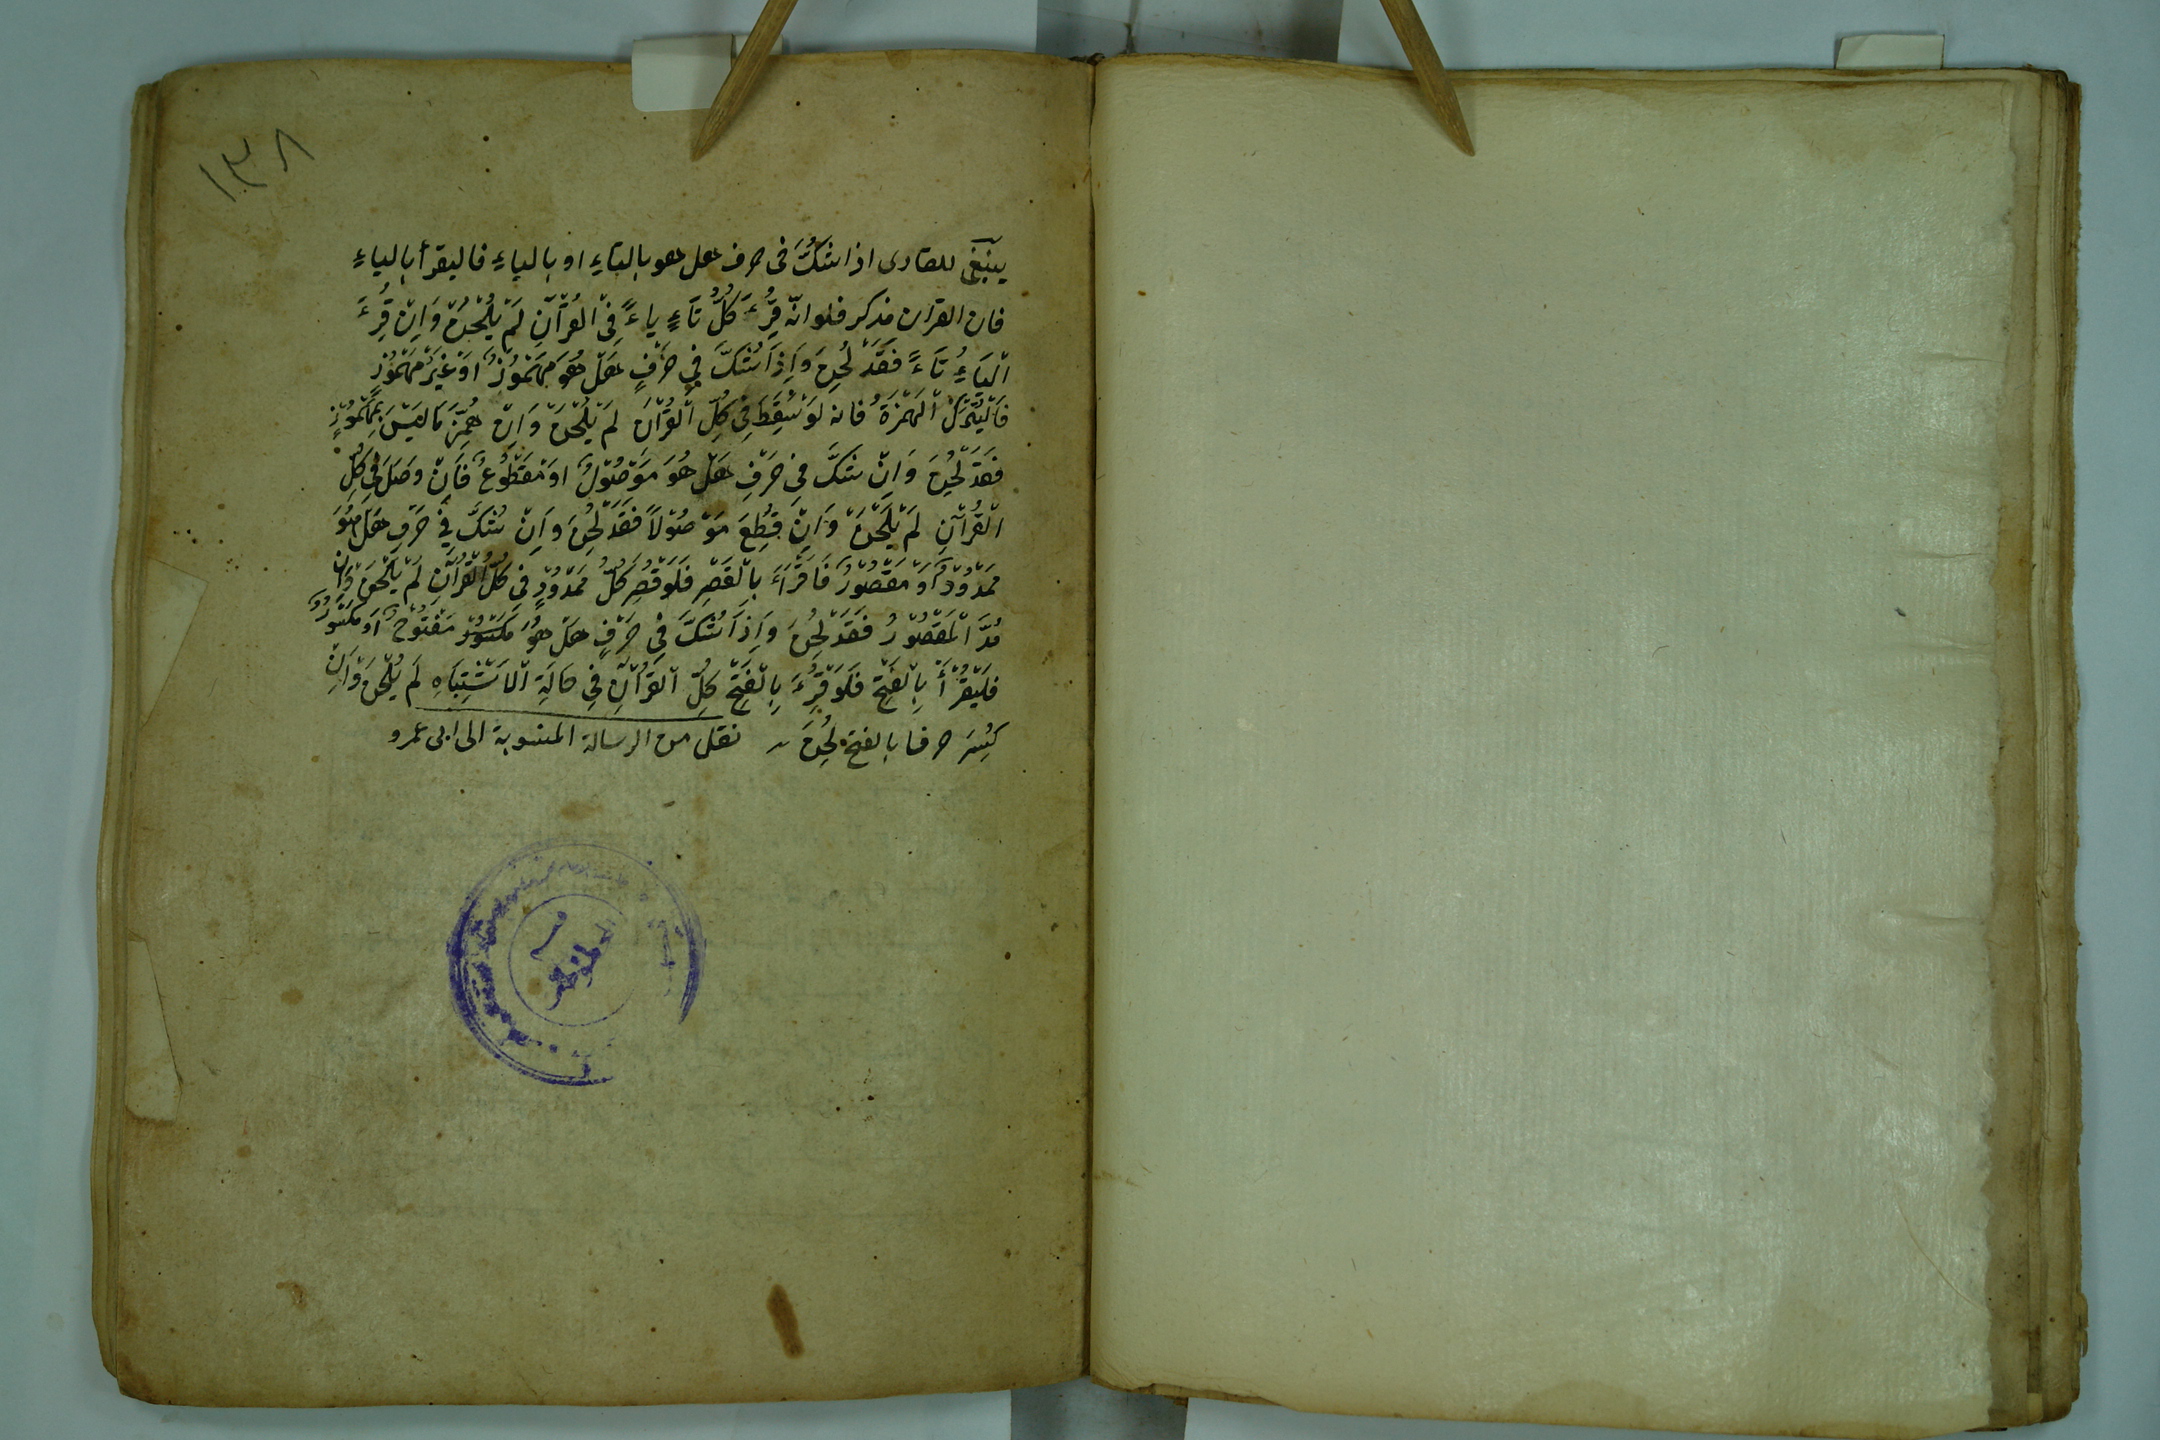 ١٣٨
ينبغي للقارى اذا شكّ فى حرف هل هو بالتاءِ او بالياءِ فاليقرأ بالياءِ
فان القران مذكر فلو انّه قُرِءَ كُلُّ تَاءٍ ياءً فِى الْقُرْآنِ لَمْ يُلْحَنْ وَاِنْ قُرِءَ
الْيَاءُ تَاءً فَقَدْ لُحِنَ وَاِذَا شُكَّ فِي حَرْفٍ هَلْ هُوَ مَهْمُوْزٌ اَوْ غَيْرُ مَهْمُوْزٍ
فَلْيَتْرُكْ الْهَمْزَةَ فانه لَوْ سُقِطَ فِى كُلِّ الْقُرْآنَ لَمْ يُلْحَنْ وَاِنْ هُمِزَ مَا لَيْسَ بِمَهْمُوْزٍ
فَقَدْ لُحِنَ وَاِنْ شكَّ فى حَرْفِ هَلْ هُوَ مَوْصُوْلٌ اَوْ مَقْطُوْعٌ فَاِنْ وصَلَ فِي كُلِّ
الْقُرْآنِ لَمْ يُلْحَنْ وَاِنْ قُطِعَ مَوْصُوْلاً فَقَدْ لُحِنَ وَاِنْ شُكَّ فِي حَرْفِ هَلْ هُوَ
مَمْدُوْدٌ اَوْ مَقْصُوْرٌ فَاقْرَأ بِالْقَصْرِ فَلَوْ قُصِرَ كُلُّ مَمْدُوْدٍ فِى كُلِّ الْقُرْآنِ لَمْ يُلْحَنْ وَاِنْ
مُدَّ الْمَقْصُوْرُ فَقَدْ لُحِنَ وَاِذَا شُكَّ فِى حَرْفٍ هَلْ هُوَ مَكْسُوْرٌ مَفْتُوْحٌ اَوْ مَكْسُوْرٌ
فَلْيَقْرَأْ بِالْفَتْحِ فَلَوْ قُرِءَ بِالْفَتْحِ كُلِّ الْقُرْآنِ فِي حَالَةِ الْاشْتِبَاهِ لَمْ يُلْحَنْ وَاِنْ
كُسِرَ حرفا بالفتح لُحِنَ نقل من الرسالة المنسوبة الى ابى عمرو